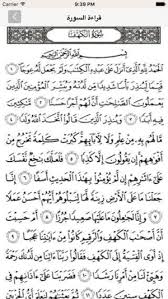 Carrier 9:39 PM
قراءة السورة
سُورَةُ الكَهْفِ
بِسْمِ ٱللَّهِ ٱلرَّحْمَٰنِ ٱلرَّحِيمِ
ٱلْحَمْدُ لِلَّهِ ٱلَّذِىٓ أَنزَلَ عَلَىٰ عَبْدِهِ ٱلْكِتَٰبَ وَلَمْ يَجْعَل لَّهُۥ عِوَجَا ۜ ١
قَيِّمًا لِّيُنذِرَ بَأْسًا شَدِيدًا مِّن لَّدُنْهُ وَيُبَشِّرَ ٱلْمُؤْمِنِينَ ٱلَّذِينَ
يَعْمَلُونَ ٱلصَّٰلِحَٰتِ أَنَّ لَهُمْ أَجْرًا حَسَنًا ٢ مَّٰكِثِينَ
فِيهِ أَبَدًا ٣ وَيُنذِرَ ٱلَّذِينَ قَالُوا۟ ٱتَّخَذَ ٱللَّهُ وَلَدًا ٤
مَّا لَهُم بِهِۦ مِنْ عِلْمٍ وَلَا لِـَٔابَآئِهِمْ كَبُرَتْ كَلِمَةً تَخْرُجُ مِنْ
أَفْوَٰهِهِمْ إِن يَقُولُونَ إِلَّا كَذِبًا ٥ فَلَعَلَّكَ بَٰخِعٌ نَّفْسَكَ
عَلَىٰٓ ءَاثَٰرِهِمْ إِن لَّمْ يُؤْمِنُوا۟ بِهَٰذَا ٱلْحَدِيثِ أَسَفًا ٦ إِنَّا جَعَلْنَا
مَا عَلَى ٱلْأَرْضِ زِينَةً لَّهَا لِنَبْلُوَهُمْ أَيُّهُمْ أَحْسَنُ عَمَلًا ٧
وَإِنَّا لَجَٰعِلُونَ مَا عَلَيْهَا صَعِيدًا جُرُزًا ٨ أَمْ حَسِبْتَ أَنَّ
أَصْحَٰبَ ٱلْكَهْفِ وَٱلرَّقِيمِ كَانُوا۟ مِنْ ءَايَٰتِنَا عَجَبًا ٩ إِذْ
أَوَى ٱلْفِتْيَةُ إِلَى ٱلْكَهْفِ فَقَالُوا۟ رَبَّنَآ ءَاتِنَا مِن لَّدُنكَ رَحْمَةً
وَهَيِّئْ لَنَا مِنْ أَمْرِنَا رَشَدًا ١٠ فَضَرَبْنَا عَلَىٰٓ ءَاذَانِهِمْ فِى